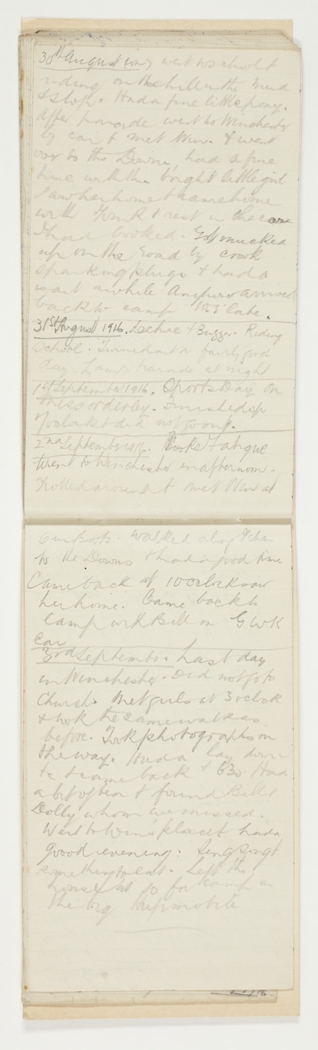 30th August (con) went to school
riding on the hill in the mud
& slop. Had a fine little pony.
After parade went to Winchester
by car & met Win. & went
over to the Downs, had a fine
time with the bright little girl
saw her home & came home
with Fink & rest in the car
I had booked. Got mucked
up on the road by crook
sparking plugs & had a
wait awhile Anyhow arrived
back to camp late.
31st August 1916. Lecture & Buzzer. Riding
School. Turned out a fairly good
day. Lamp parade at night
1st September 1916. Sports Day on
this orderley. Finished up
o'clock & did not go out.
2nd September 1916. Fatigue
Went to Winchester in afternoon.
Trotted around & met Win at
6 o'clock. Walked along
to the Downs & had a good time
Came back at 10 o'clock saw
her home. Came back to
camp with Bill in GWK
Car
3rd September. Last day
in Winchester. Did not go to
Church. Met girls at 3 o'clock
& took the same walk as
before. Took photographs on
the way. Had a lay down
& came back at 630. Had
a bit of tea & found Bill &
Dolly whom we missed.
Went to Wins place & had a
good evening. Sing song &
something to eat. Left the
house at 10 for camp in
the big Hupmobile